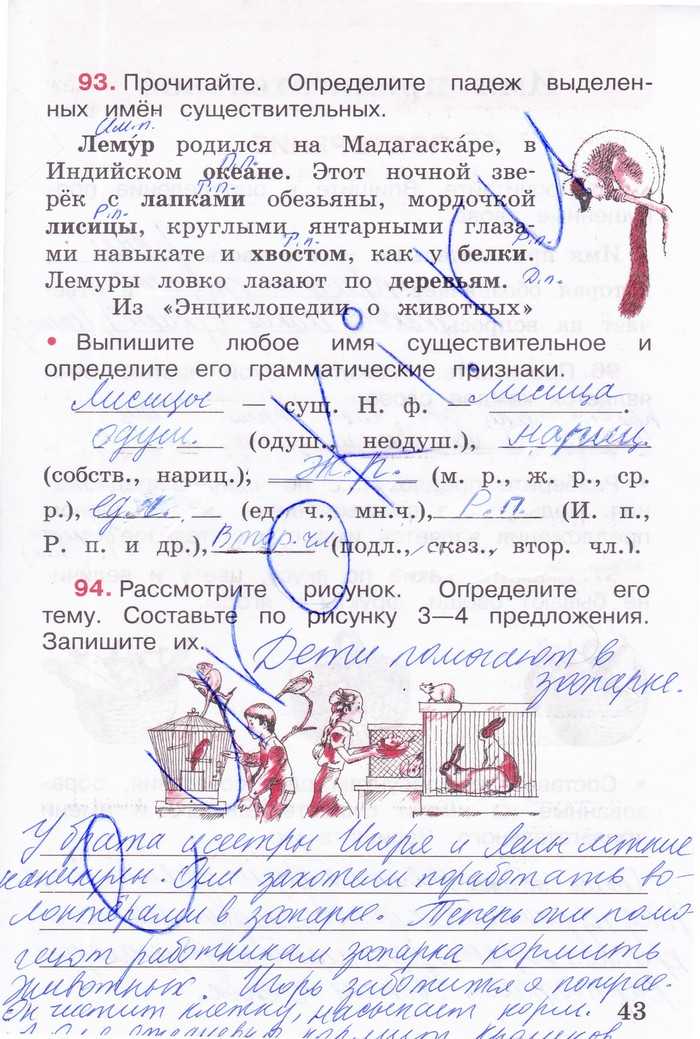 93. Прочитайте. Определите падеж выделен-
ных имён существительных.
Им.п.
Лему́р родился на Мадагаска́ре, в
П.п.
Индийском океане. Этот ночной зве-
Р.п.
рёк с лапками обезьяны, мордочкой
Р.п.
лисицы, круглыми янтарными глаза-
Р.п. Р.п.
ми навыкате и хвостом, как у белки.
Лемуры ловко лазают по деревьям. Д.п.
Из «Энциклопедии о животных»
• Выпишите любое имя существительное и
определите его грамматические признаки.
Лисицы — сущ. Н. ф. — Лисица.
одуш. (одуш., неодуш.), нариц.
(собств., нариц.); ж.р. (м. р., ж. р., ср.
р.), ед.ч. (ед. ч., мн.ч.), Р.п. (И. п.,
Р. п. и др.), Втор.чл (подл., сказ., втор. чл.).
94. Рассмотрите рисунок. Определите его
тему. Составьте по рисунку 3—4 предложения.
Запишите их. Дети помогают в
зоопарке.
У брата и сестры Игоря и Лены летние
каникулы. Они захотели поработать во-
лонтёрами в зоопарке. Теперь они помо
гают работникам зоопарка кормить
животных. Игорь заботится о попугае.
Он чистит клетку, насыпает корм.
43
кормит кроликов